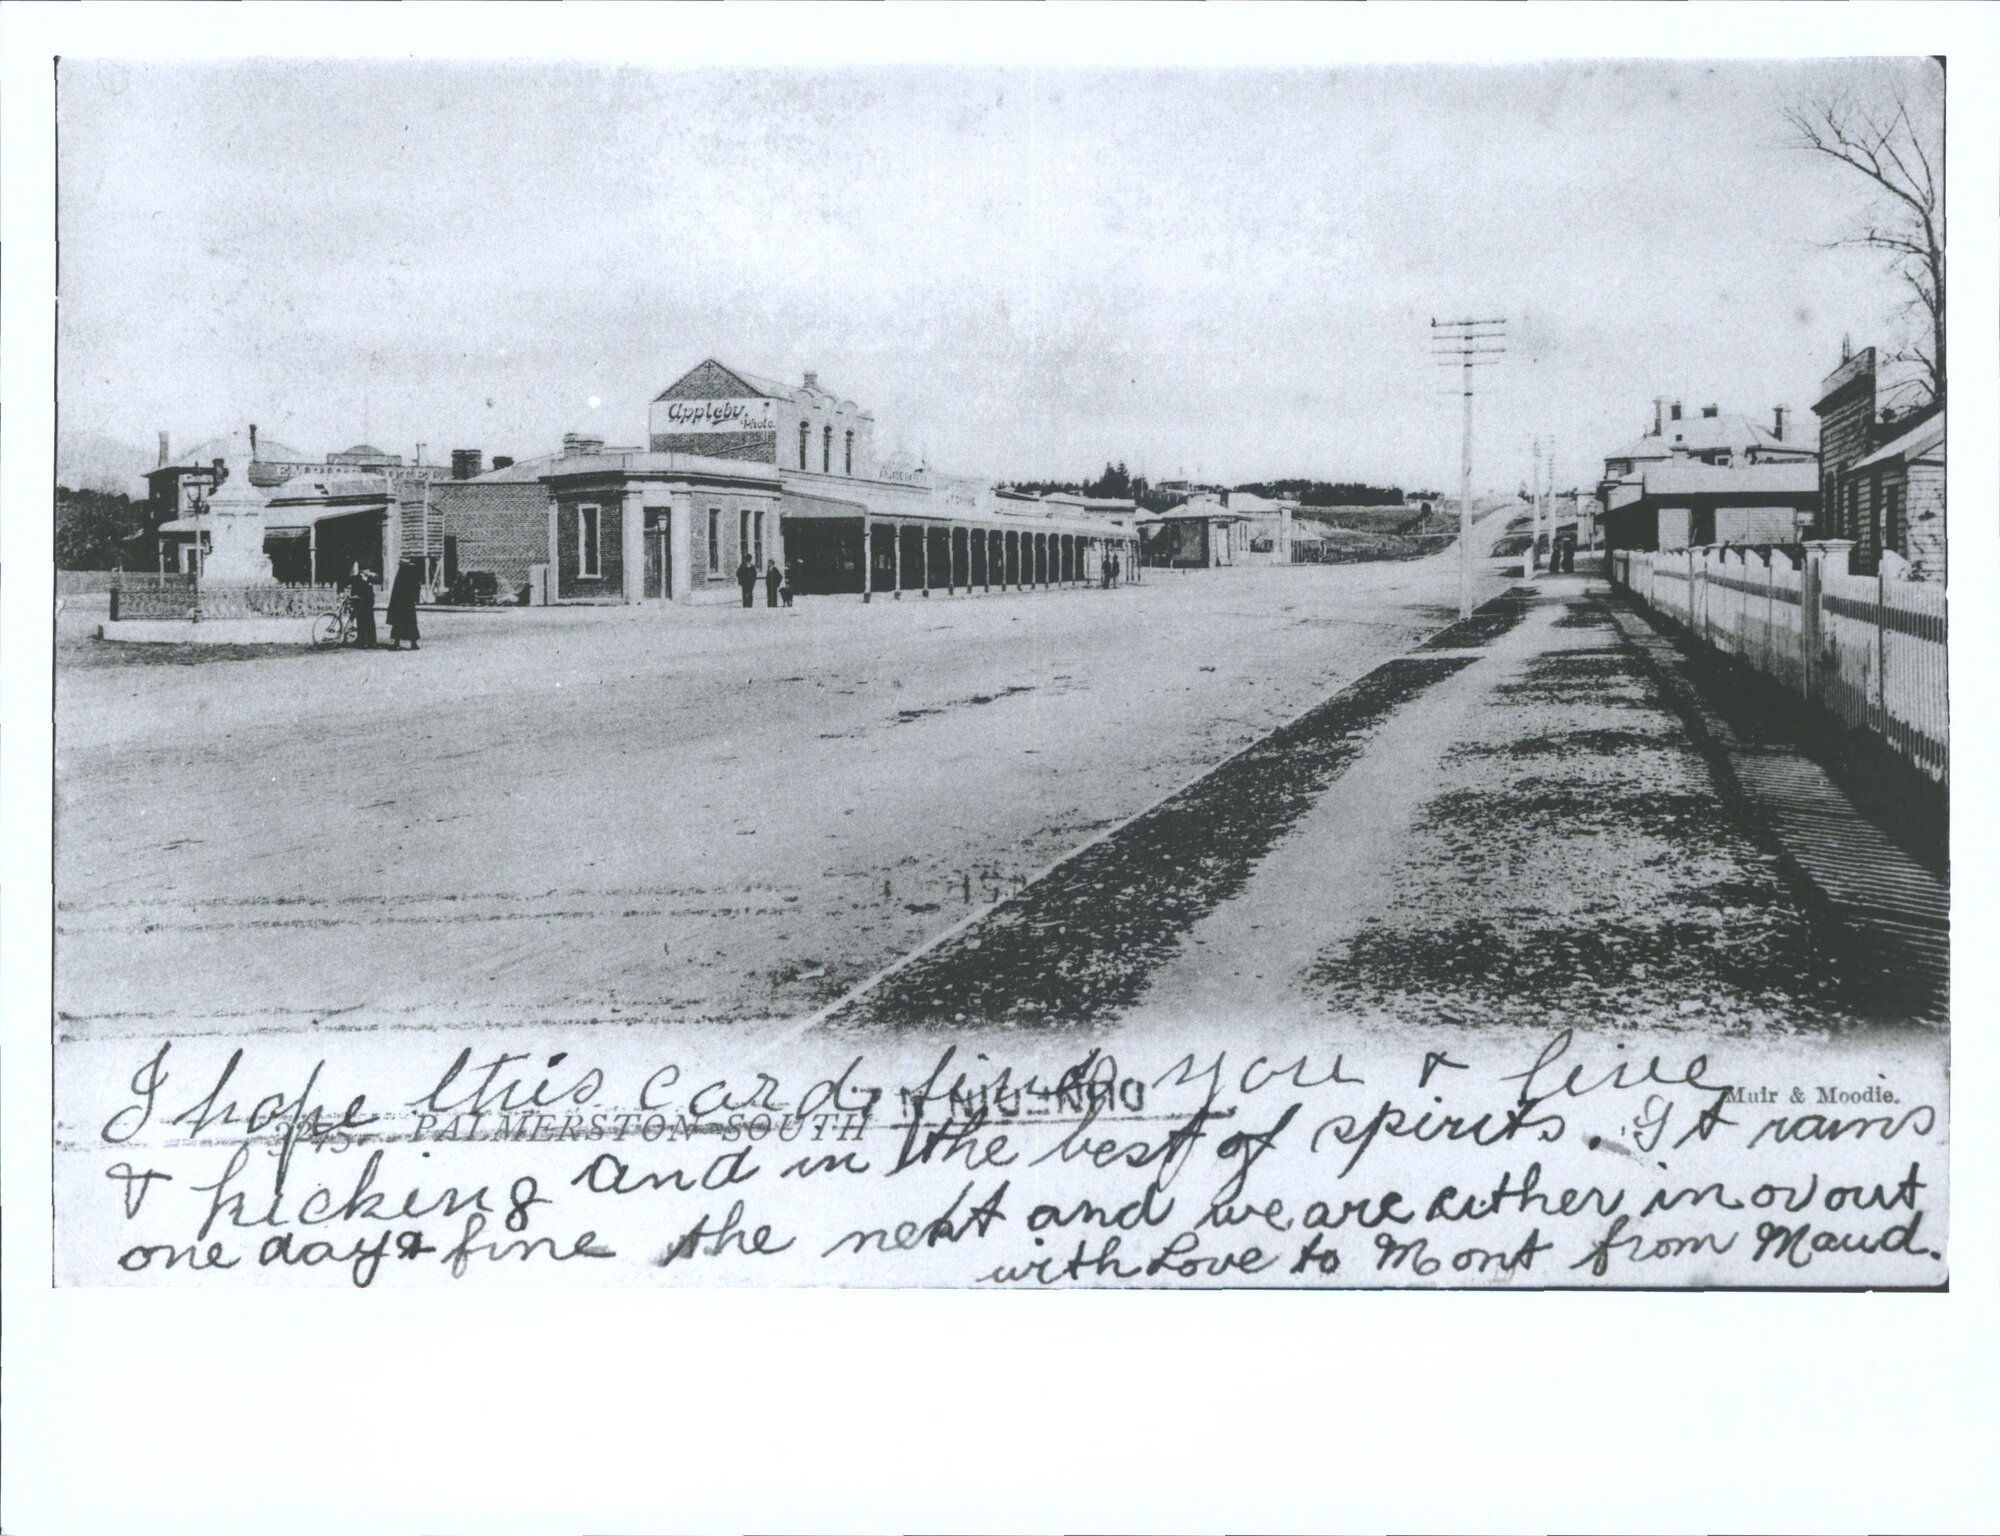 Appleby.
Photo.
I hope this card finds you & live
Muir & Moodie.
PALMERSTON SOUTH
& kicking and in the best of spirits. It rains
one day & fine the next and we are either in or out
with Love to Mont from Maud.